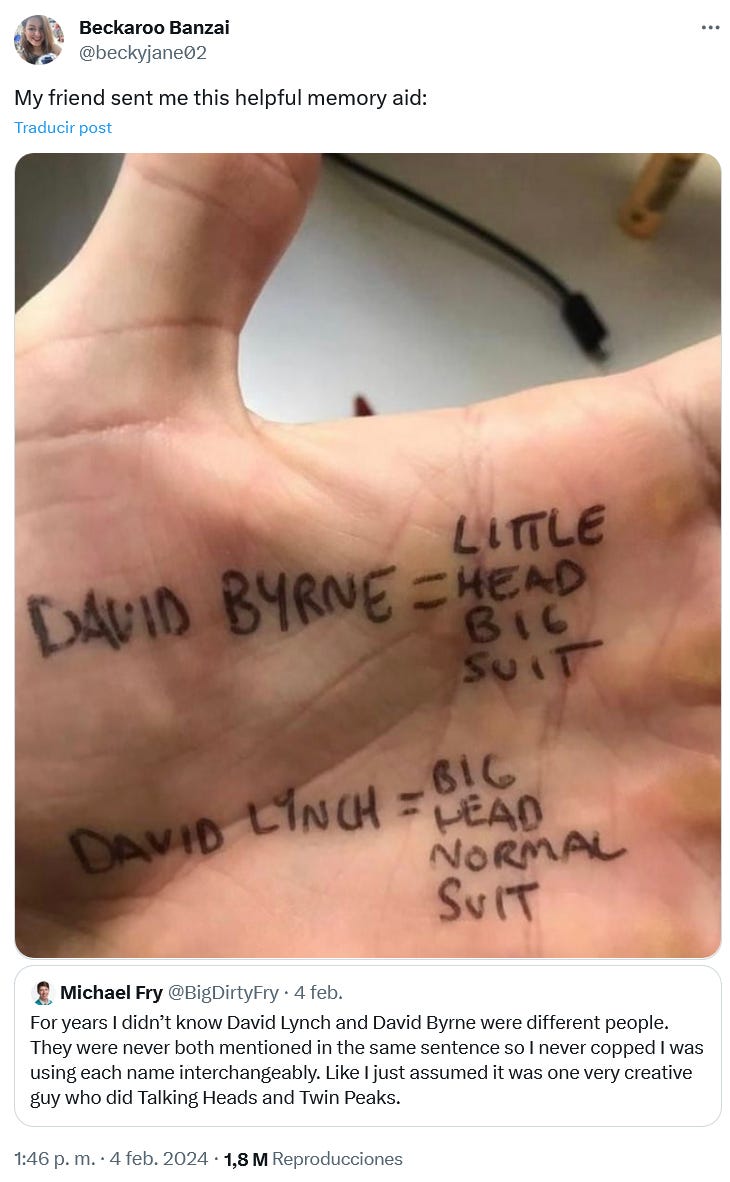 Beckaroo Banzai
@beckyjane02
My friend sent me this helpful memory aid:
Traducir post
DAVID BYRNE = LITTLE
HEAD
BIG
SUIT
DAVID LYNCH = BIG
HEAD
NORMAL
SUIT
Michael Fry @BigDirtyFry · 4 feb.
For years I didn’t know David Lynch and David Byrne were different people.
They were never both mentioned in the same sentence so I never copped I was
using each name interchangeably. Like I just assumed it was one very creative
guy who did Talking Heads and Twin Peaks.
1:46 p. m. · 4 feb. 2024 · 1,8 M Reproducciones